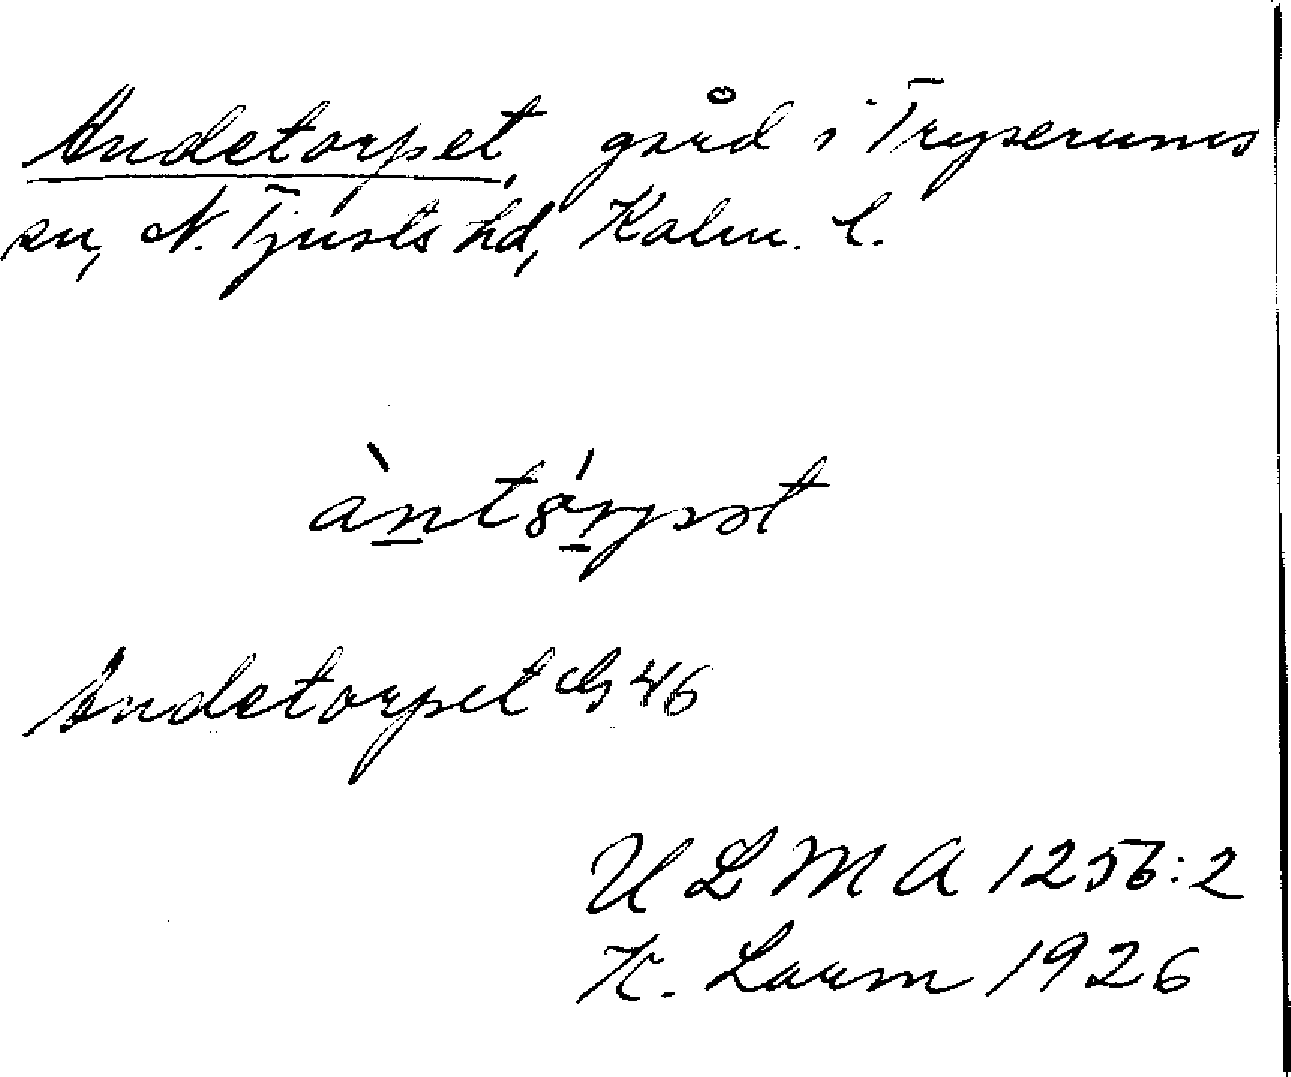 Andetorpet, gård i Tryserums
sn, N. Tjusts hd, Kalm. l.
àntó̤rpət
Andetorpet G 46
ULMA 1256:2
K. Larm 1926